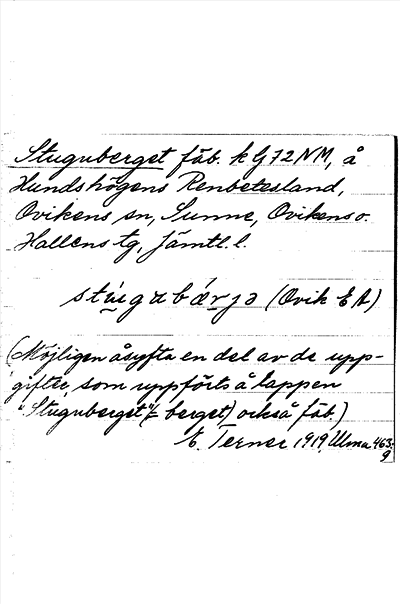 Stuguberget fäb. k G72NM, å
Hundshögens Renbetesland,
Ovikens sn, Sunne, Ovikens o.
Hallens tg, Jämtl. l.
stúguбǽrjə (Ovik E A)
(Möjligen åsyfta en del av de upp-
gifter som uppförts å lappen
"Stuguberget" (= berget) också fäb.)
E. Terner 1919, Ulma 463:
9